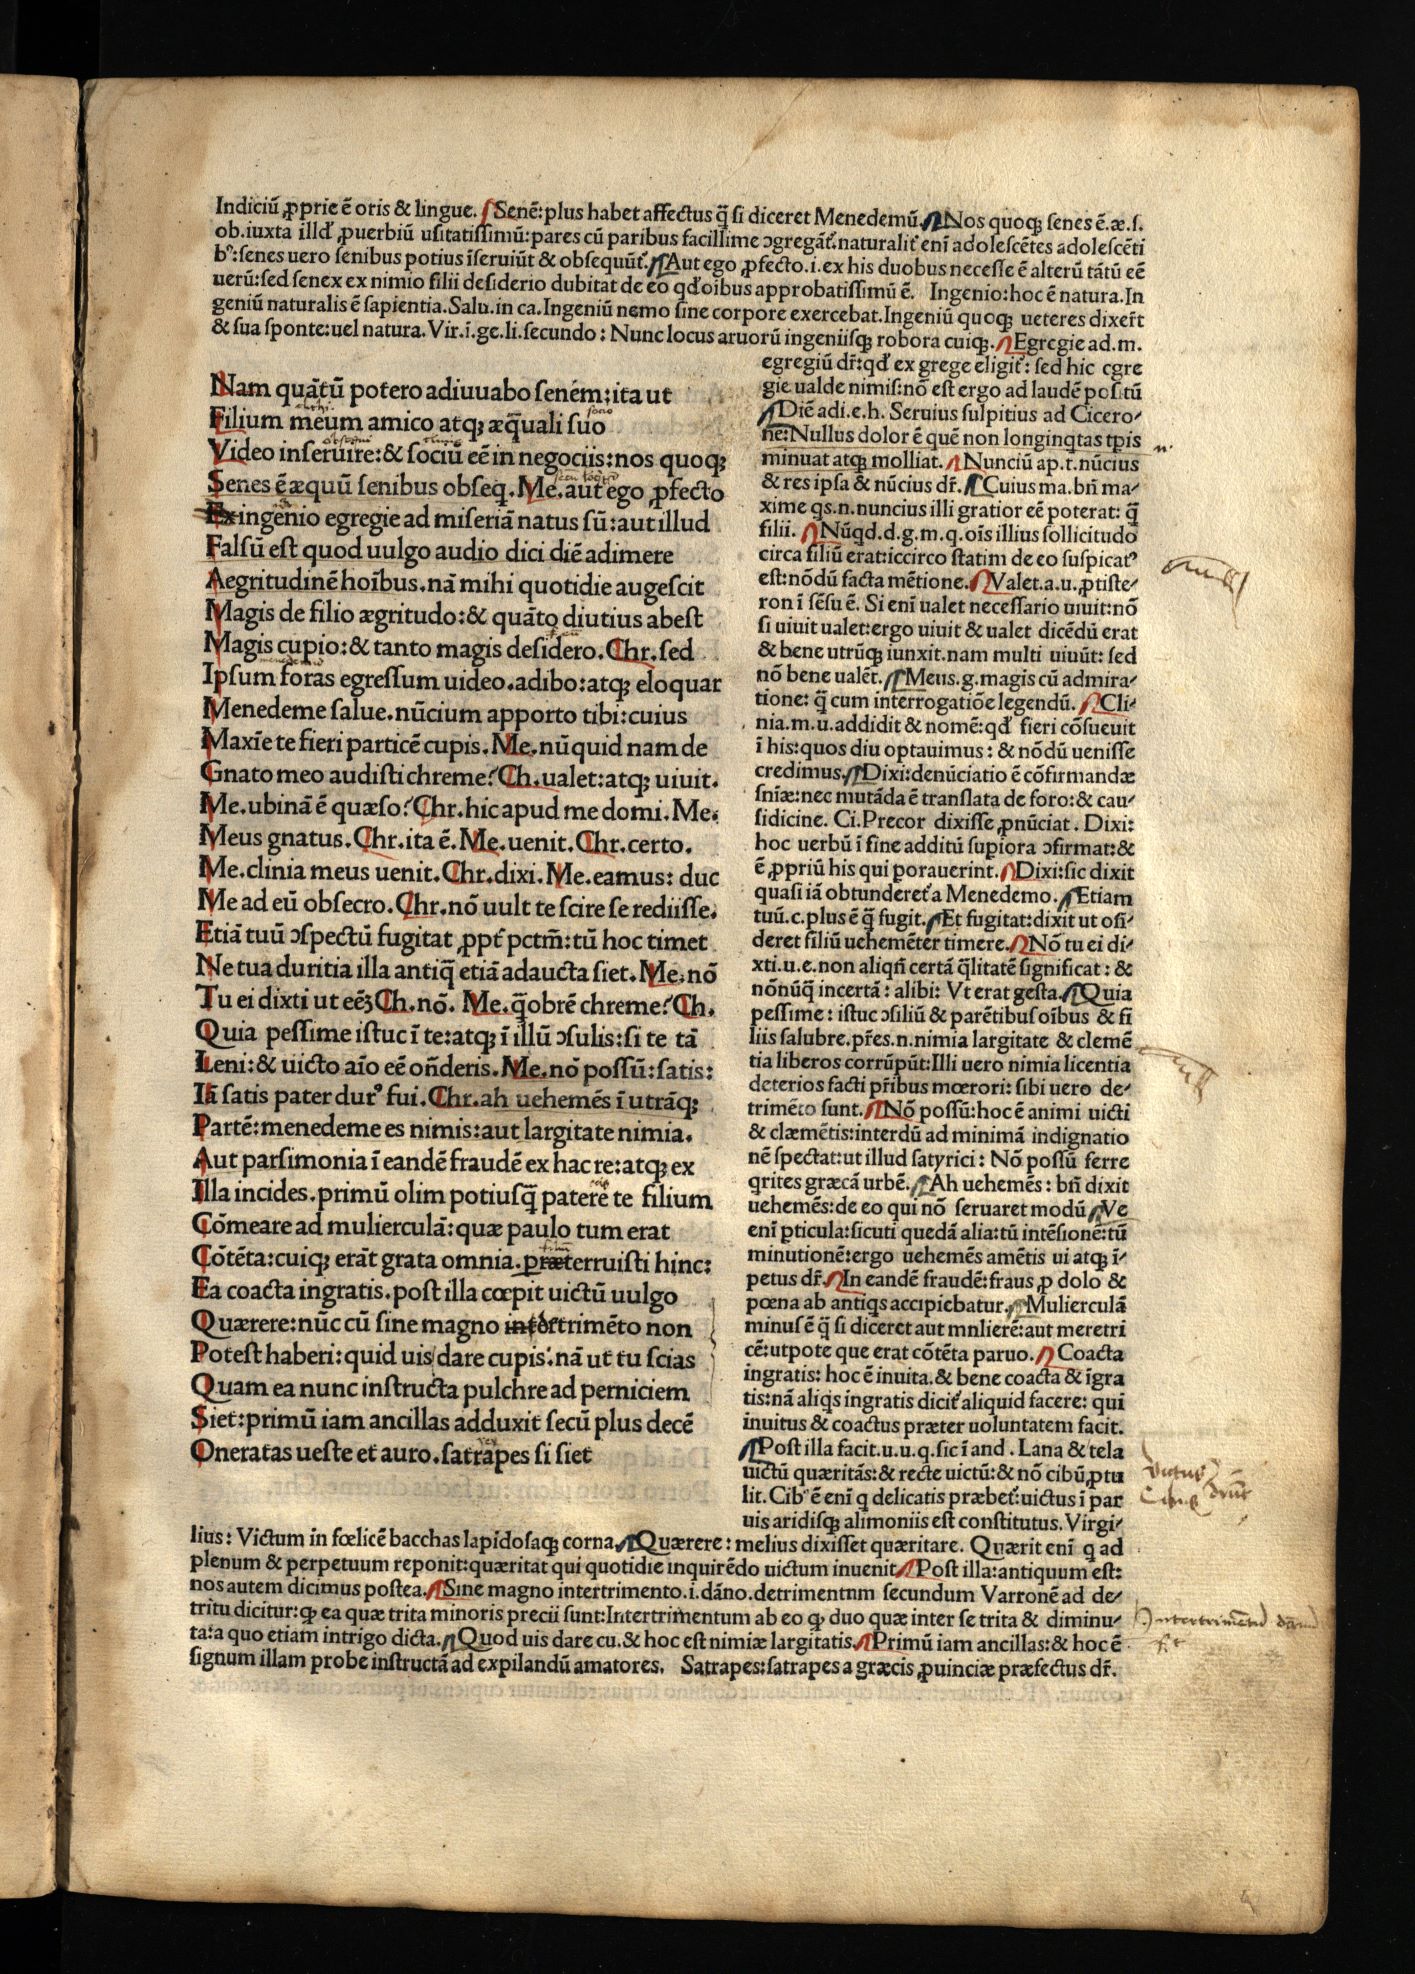 Indiciū ꝓprie ē oris & lingue. Senē: plus habet affectus q̄ si diceret Menedemū. Nos quoqꝫ senes ē.æ.s.
ob.iuxta illd ꝓuerbiū usitatissimū: pares cū paribus facillime ↄgregāt.naturalit enī adolescētes adolescēti
bꝰ: senes uero senibus potius īseruiūt & obsequūt. Aut ego ꝓfecto.i.ex his duobus necesse ē alterū tātū eē
uerū: sed senex ex nimio filii desiderio dubitat de eo qd oībus approbatissimū ē. Ingenio: hoc ē natura. In
geniū naturalis ē sapientia. Salu. in ca. Ingeniū nemo sine corpore exercebat. Ingeniū quoqꝫ ueteres dixert̄
& sua sponte: uel natura. Vir.ī.ge.li.secundo: Nunc locus aruorū ingeniisqꝫ robora cuiqꝫ. Egregie ad.m.
Nam quātū potero adiuuabo senem: ita ut
Filium meum amico atqꝫ æq̄uali suo
Video inseruire: & sociū eē in negociis: nos quoqꝫ
Senes ē æquū senibus obseq. Me. aut ego ꝓfecto
Ex ingenio egregie ad miseriā natus sū: aut illud
Falsū est quod uulgo audio dici diē adimere
Aegritudinē hoībus. nā mihi quotidie augescit
Magis de filio ægritudo: & quāto diutius abest
Magis cupio: & tanto magis desidero. Chr. sed
Ipsum foras egressum uideo. adibo: atqꝫ eloquar
Menedeme salue. nūcium apporto tibi: cuius
Maxīe te fieri particē cupis. Me. nūquid nam de
Gnato meo audisti chreme? Ch. ualet: atqꝫ uiuit.
Me. ubinā ē quæso? Chr. hic apud me domi. Me.
Meus gnatus. Chr. ita ē. Me. uenit. Chr. certo.
Me. clinia meus uenit. Chr. dixi. Me. eamus: duc
Me ad eū obsecro. Chr. nō uult te scire se rediisse.
Etiā tuū ↄspectū fugitat ꝓpt pctm̄: tū hoc timet
Ne tua duritia illa antiq̄ etiā adaucta siet. Me. nō
Tu ei dixti ut eēꝫ Ch. nō. Me. q̄obrē chreme? Ch.
Quia pessime istuc ī te: atqꝫ ī illū ↄsulis: si te tā
Leni: & uicto aīo eē on̄deris. Me. nō possū: satis:
Iā satis pater durꝰ fui. Chr. ah uehemēs ī utrāqꝫ
Partē: menedeme es nimis: aut largitate nimia.
Aut parsimonia ī eandē fraudē ex hac re: atqꝫ ex
Illa incides. primū olim potiusq̄ patere te filium
Cōmeare ad mulierculā: quæ paulo tum erat
Cōtēta: cuiqꝫ erāt grata omnia. præterruisti hinc:
Ea coacta ingratis. post illa cœpit uictū uulgo
Quærere: nūc cū sine magno intertrimēto non
Potest haberi: quid uis dare cupis: nā ut tu scias
Quam ea nunc instructa pulchre ad perniciem
Siet: primū iam ancillas adduxit secū plus decē
Oneratas ueste et auro. satrapes si siet
egregiū dr̄: qd ex grege eligit: sed hic egre
gie ualde nimis: nō est ergo ad laudē positū
Diē adi.e.h. Seruius sulpitius ad Cicero-
nē: Nullus dolor ē quē non longinqtas tpis
minuat atqꝫ molliat. Nunciū ap.t. nūcius
& res ipsa & nūcius dr̄. Cuius ma. bn̄ ma-
xime qs.n. nuncius illi gratior eē poterat: q̄
filii. Nūqd.d.g.m.q.oīs illius sollicitudo
circa filiū erat: iccirco statim de eo suspicatꝰ
est: nōdū facta mētione. Valet.a.u. ꝓtiste-
ron ī sēsu ē. Si enī ualet necessario uiuit: nō
si uiuit ualet: ergo uiuit & ualet dicēdū erat
& bene utrūqꝫ iunxit. nam multi uiuūt: sed
nō bene ualēt. Meus.g. magis cū admira-
tione: q̄ cum interrogatiōe legendū. Cli-
nia.m.u. addidit & nomē: qd fieri cōsueuit
ī his: quos diu optauimus: & nōdū uenisse
credimus. Dixi: denūciatio ē cōfirmandæ
snīæ: nec mutāda ē translata de foro: & cau-
sidicine. Ci. Precor dixisse ꝓnūciat. Dixi:
hoc uerbū ī fine additū supiora ↄfirmat: &
ē ꝓpriū his qui porauerint. Dixi: sic dixit
quasi iā obtunderet a Menedemo. Etiam
tuū.c. plus ē q̄ fugit. Et fugitat: dixit ut osī-
deret filiū uehemēter timere. Nō tu ei di-
xti.u.e. non aliqn̄ certā q̄litatē significat: &
nōnūq̄ incertā: alibi: Vt erat gesta. Quia
pessime: istuc ↄsiliū & parētibus oībus & fi
liis salubre. pr̄es.n. nimia largitate & clemē
tia liberos corrūpūt: Illi uero nimia licentia
deterios facti pr̄ibus mœrori: sibi uero de-
trimēto sunt. Nō possū: hoc ē animi uicti
& clæmētis: interdū ad minimā indignatio
nē spectat: ut illud satyrici: Nō possū ferre
qrites græcā urbē. Ah uehemēs: bn̄ dixit
uehemēs: de eo qui nō seruaret modū. Ve
enī pticula: sicuti quedā alia: tū intēsionē: tū
minutionē: ergo uehemēs amētis ui atqꝫ ī-
petus dr̄. In eandē fraudē: fraus ꝓ dolo &
pœna ab antiqs accipiebatur. Mulierculā
minus ē q̄ si diceret aut mnlierē: aut meretri
cē: utpote que erat cōtēta paruo. Coacta
ingratis: hoc ē inuita. & bene coacta & īgra
tis: nā aliqs ingratis dicit aliquid facere: qui
inuitus & coactus præter uoluntatem facit.
Post illa facit.u.u.q. sic ī and. Lana & tela
uictū quæritās: & recte uictū: & nō cibū ꝓtu
lit. Cibꝰ ē enī q delicatis præbet: uictus ī par
uis aridisqꝫ alimoniis est constitutus. Virgi-
lius: Victum in fœlicē bacchas lapidosaqꝫ corna. Quærere: melius dixisset quæritare. Quærit enī q ad
plenum & perpetuum reponit: quæritat qui quotidie inquirēdo uictum inuenit. Post illa: antiquum est:
nos autem dicimus postea. Sine magno intertrimento.i. dāno. detrimentnm secundum Varronē ad de-
tritu dicitur: qꝫ ea quæ trita minoris precii sunt: Intertrimentum ab eo qꝫ duo quæ inter se trita & diminu-
ta: a quo etiam intrigo dicta. Quod uis dare cu. & hoc est nimiæ largitatis. Primū iam ancillas: & hoc ē
signum illam probe instructā ad expilandū amatores. Satrapes: satrapes a græcis ꝓuinciæ præfectus dr̄.